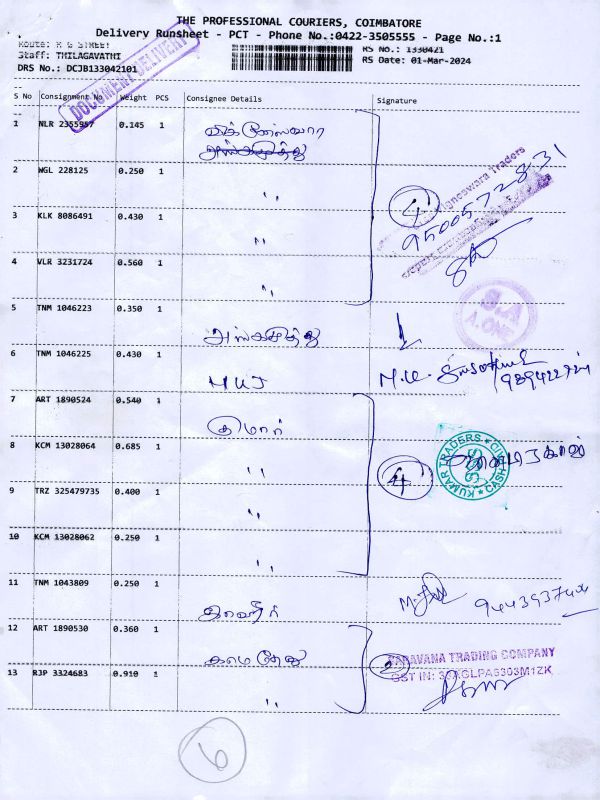 THE PROFESSIONAL COURIERS, COIMBATORE
Delivery Runsheet - PCT - Phone No.:0422-3505555 - Page No.:1
Route: R G STREET
RS No.: 1330421
Staff: THILAGAVATHI
RS Date: 01-Mar-2024
DRS No.: DCJB133042101
DOCUMENT DELIVERY
S No Consignment No Weight PCS Consignee Details Signature
1 NLR 2355957 0.145 1
2 WGL 228125 0.250 1 "
3 KLK 8086491 0.430 1 "
4 VLR 3231724 0.560 1 "
4
Traders
9500572831
5 TNM 1046223 0.350 1
S.A
A.ONE
6 TNM 1046225 0.430 1 MUJ
7 ART 1890524 0.540 1 குமார்
8 KCM 13028064 0.685 1 "
9 TRZ 325479735 0.400 1 "
10 KCM 13028062 0.250 1 "
4
KUMAR TRADERS
CASH
11 TNM 1043809 0.250 1
12 ART 1890530 0.360 1 காமதேனு
13 RJP 3324683 0.910 1 "
2
SARAVANA TRADING COMPANY
GST IN: 33AGLPA5303M1ZK
6